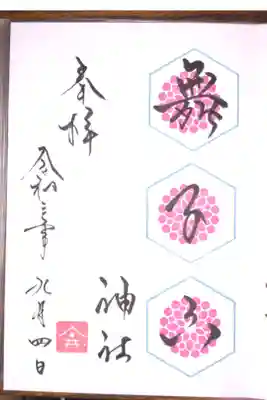 舞子六
神社
奉拝
令和三年
九月四日